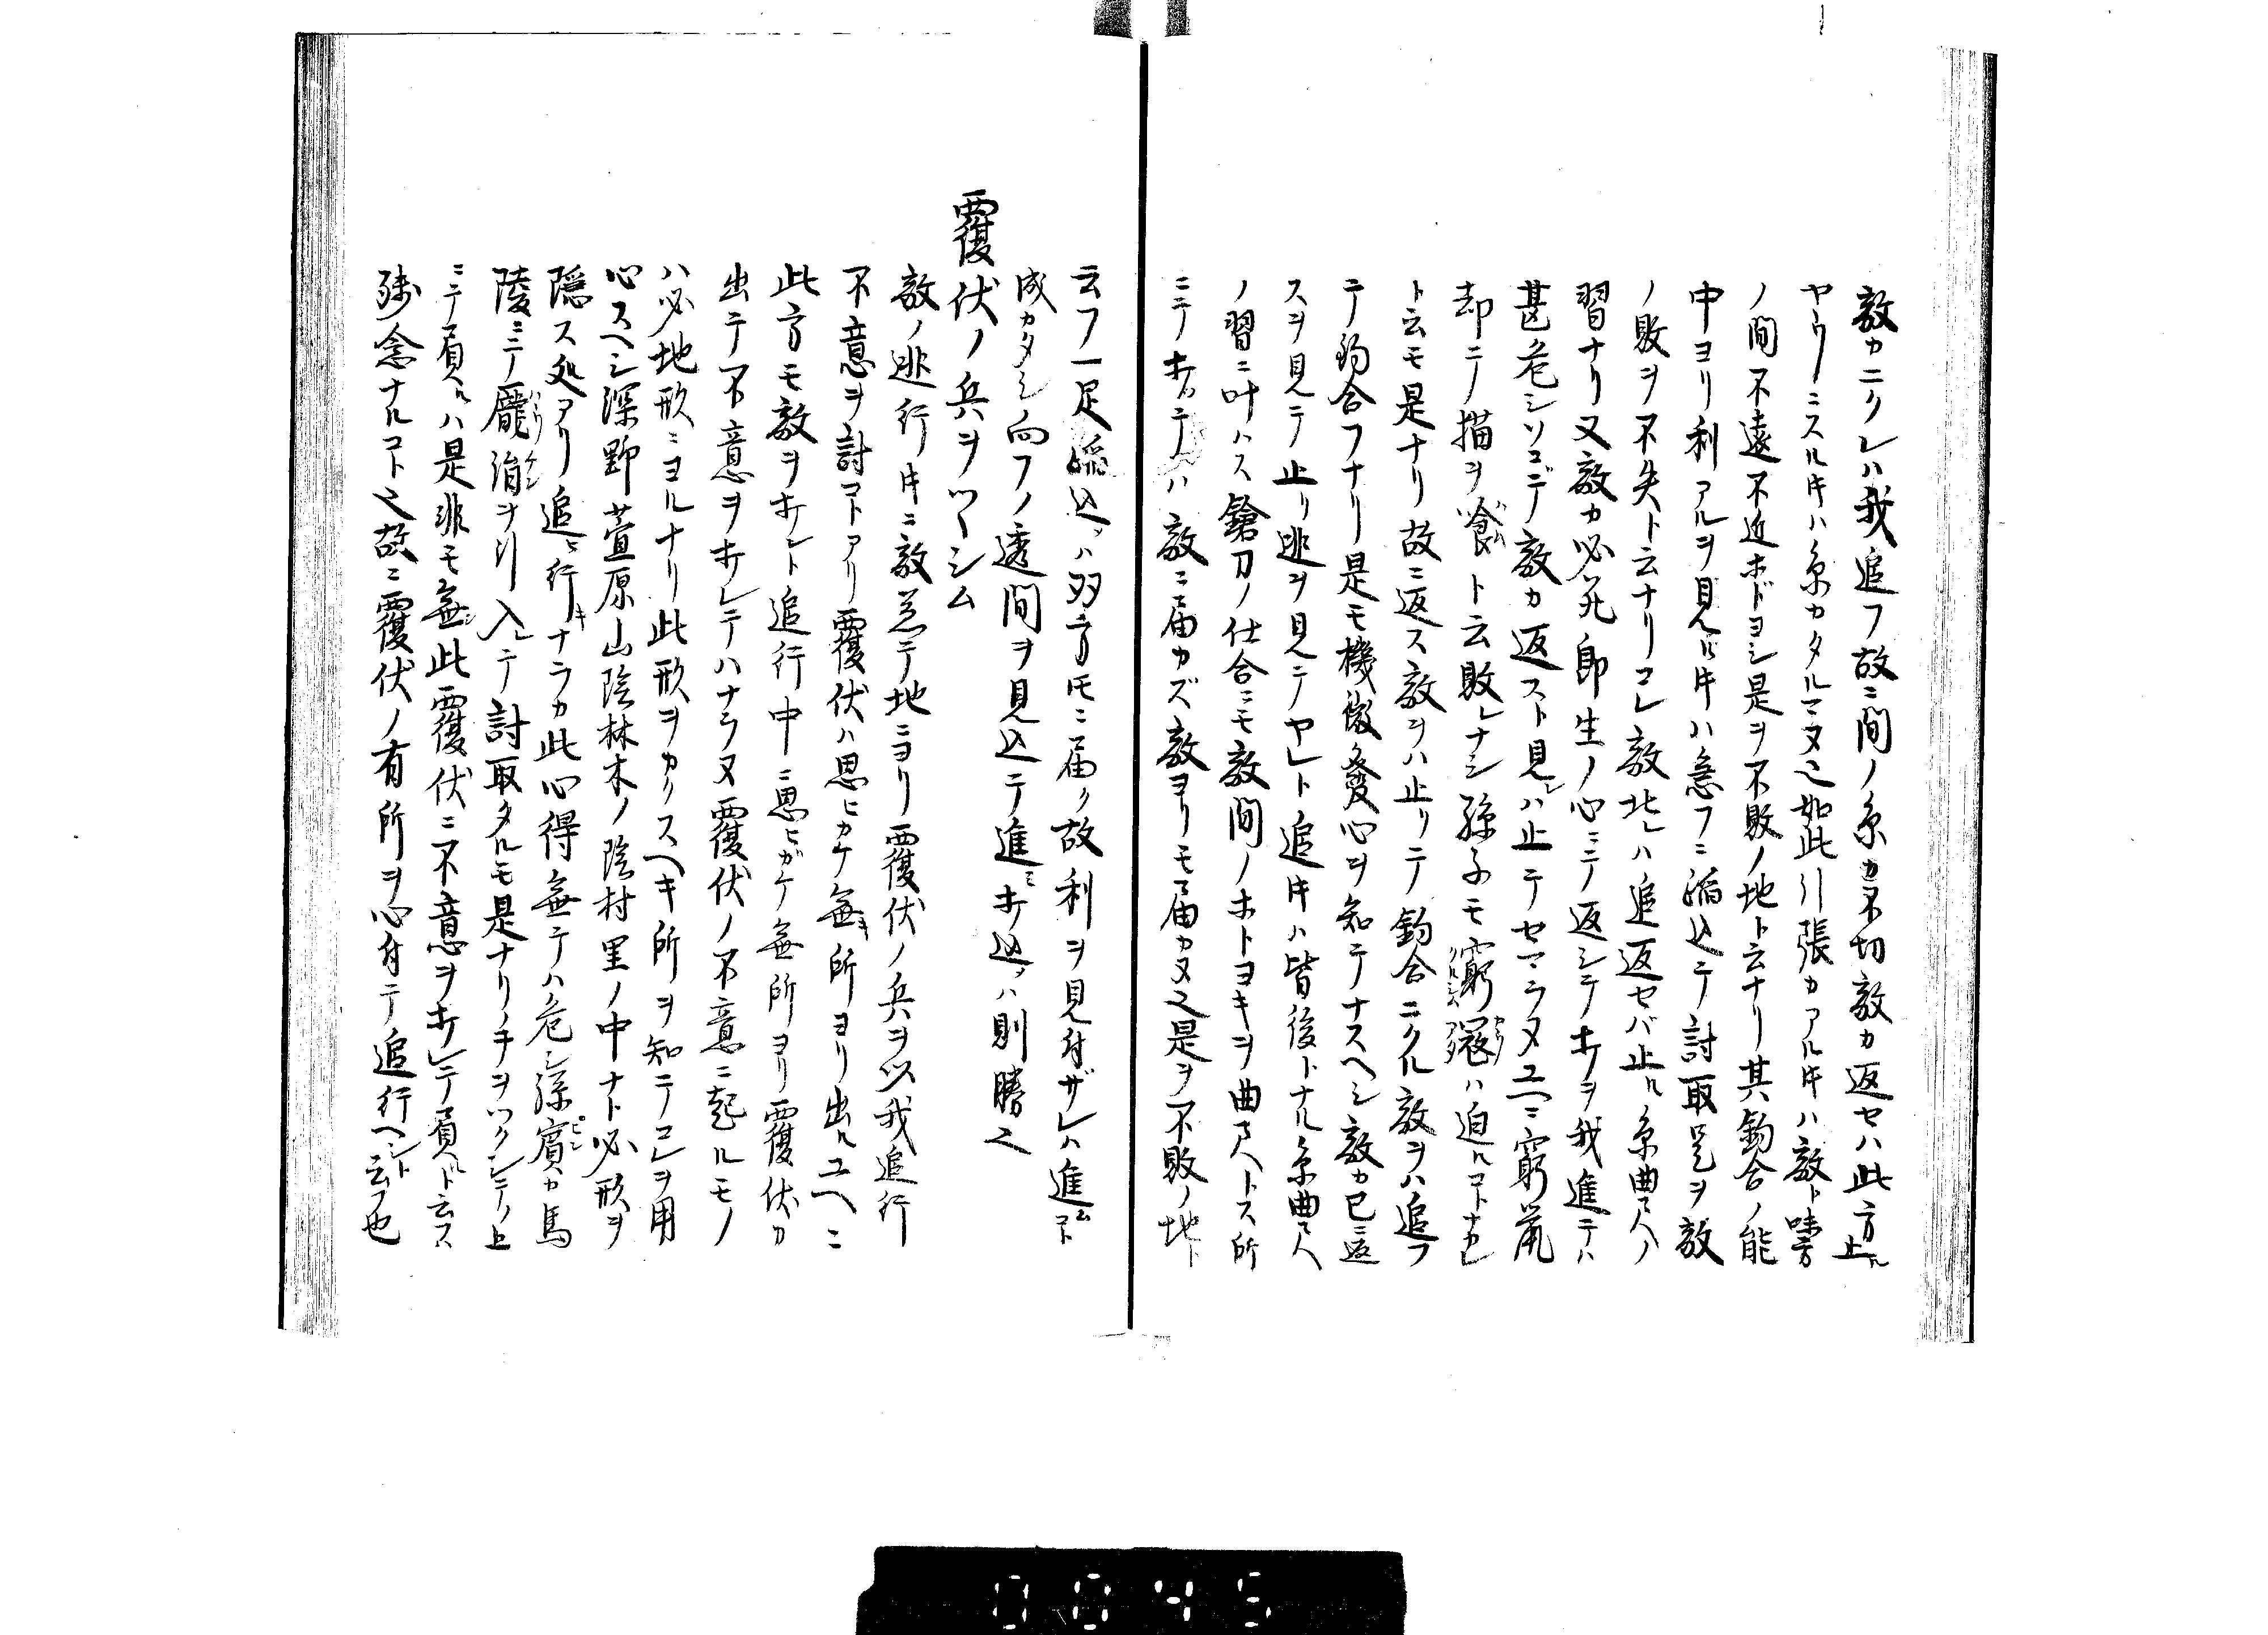 敵カニクレハ我追フ故ニ間ノ糸カ不切敵カ返セハ此方止ル
ヤウニスルキハ糸カタルマヌ之如此引張カアルキハ敵ト味方
ノ間不遠不近ホドヨシ是ヲ不敗ノ地ト云ナリ其釣合ノ能
中ヨリ利アルヲ見ルキハ急フニ蹈込テ討取是ヲ敵
ノ敗ヲ不失ト云ナリコレ敵北レハ追返セバ止ル糸曲尺ノ
習ナリ又敵カ必死即生ノ心ニテ返シテ打ヲ我進テハ
甚危シソコデ敵カ返スト見レハ止テセマラヌユヘニ窮鼠
却テ猫ヲ喰ムト云敗レナシ孫子モ窮寇ハ迫ルコトナカレ
ト云モ是ナリ故ニ返ス敵ヲハ止リテ釣合ニクル敵ヲハ追フ
テ釣合フナリ是モ機微發心ヲ知テナスヘシ敵カ已ニ返
スヲ見テ止リ逃ヲ見テヤレト追キハ皆後トナル糸曲尺
ノ習ニ叶ハス鎗刀ノ仕合ニモ敵間ノホトヨキヲ曲尺トス所
ニテ打テハ敵ニ届カズ敵ヨリモ届カヌ之是ヲ不敗ノ地ト
云フ一足蹈込ハ双方トモニ届ク故利ヲ見付ザレハ進ムコト
成カタシ向フノ透間ヲ見込テ進ミ打込ハ則勝之
覆伏ノ兵ヲツヽシム
敵ノ逃行キニ敵兼テ地ニヨリ覆伏ノ兵ヲ以我追行
不意ヲ討コトアリ覆伏ハ思ヒカケ無キ所ヨリ出ルユヘニ
此方モ敵ヲ打ント追行中ニ思ヒガケ無所ヨリ覆伏カ
出テ不意ヲ打レテハナラヌ覆伏ノ不意ニ起ルモノ
ハ必地形ニヨルナリ此形ヲカクスヘキ所ヲ知テコレヲ用
心スヘシ深野萱原山陰林木ノ陰村里ノ中ナト必形ヲ
隠ス処アリ追ヒ行キナラカ此心得無テハ危シ孫賓カ馬
陵ニテ龐涓ヲ引入レテ討取タルモ是ナリ手ヲツクシテノ上
ニテ負ルハ是非モ無シ此覆伏ニ不意ヲ打レテ負ルト云ハ
残念ナルコト之故ニ覆伏ノ有所ヲ心付テ追行ヘシト云フ也